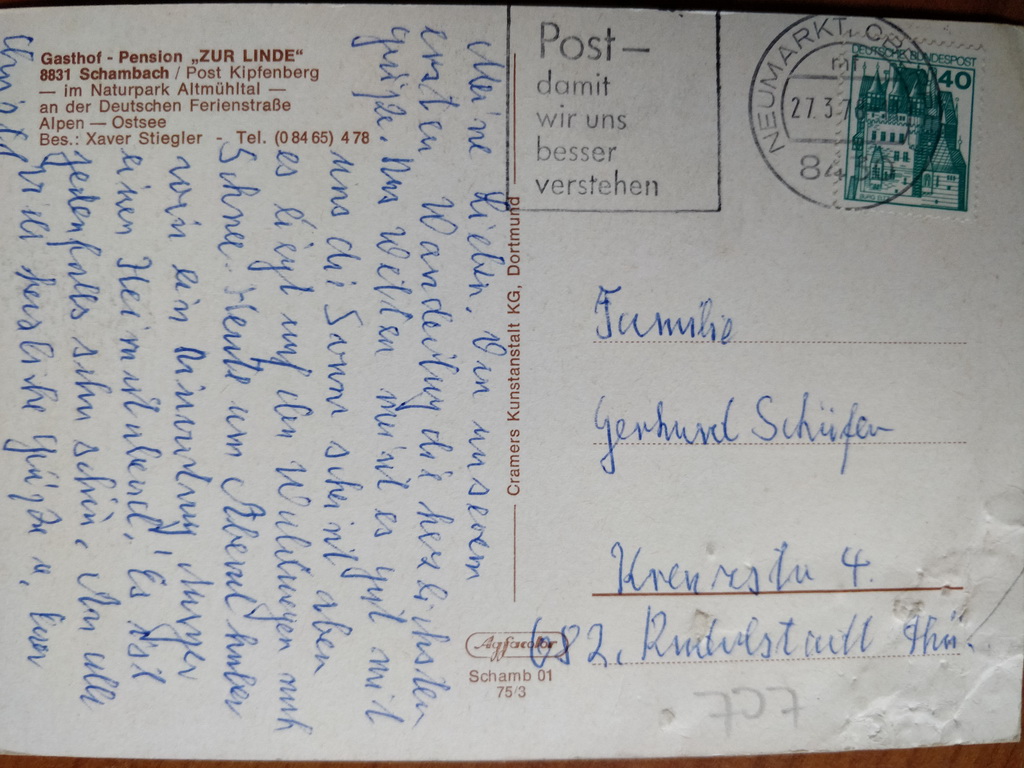 Gasthof - Pension „ZUR LINDE“
8831 Schambach / Post Kipfenberg
— im Naturpark Altmühltal —
an der Deutschen Ferienstraße
Alpen — Ostsee
Bes.: Xaver Stiegler - Tel. (0 84 65) 4 78
Meine Lieben. Von unserem
ersten die herzlichsten
Grüße. Das Wetter meint es gut mit
uns die Sonne scheint aben
es liegt auf den Waldwegen noch
Schnee. Heute am Abend haben
wir ein
einen Heimatabend. Es ist
jedenfalls sehr schön. An alle
viel herzliche Grüße u.
Cramers Kunstanstalt KG, Dortmund
Agfacolor
Schamb 01
75/3
Post—
damit
wir uns
besser
verstehen
NEUMARKT, OPF
27.3.7
DEUTSCHE BUNDESPOST
40
Familie
Gerhard Schäfer
4.
682. Rudolstadt Thü.